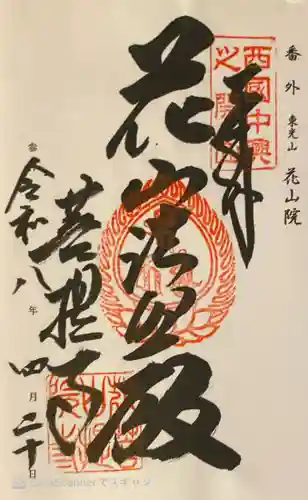 番外 東光山 花山院
奉拝
西國中興
之開山
花山法皇殿
菩提寺
令和八年四月二十日
CamScannerでスキャン